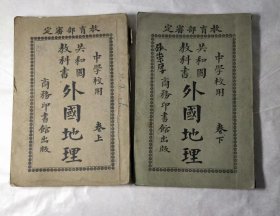 定審部育教
中學校用
共和國
教科書
外國地理
卷上
商務印書館出版
定審部育教
中學校用
共和國
教科書
外國地理
卷下
商務印書館出版